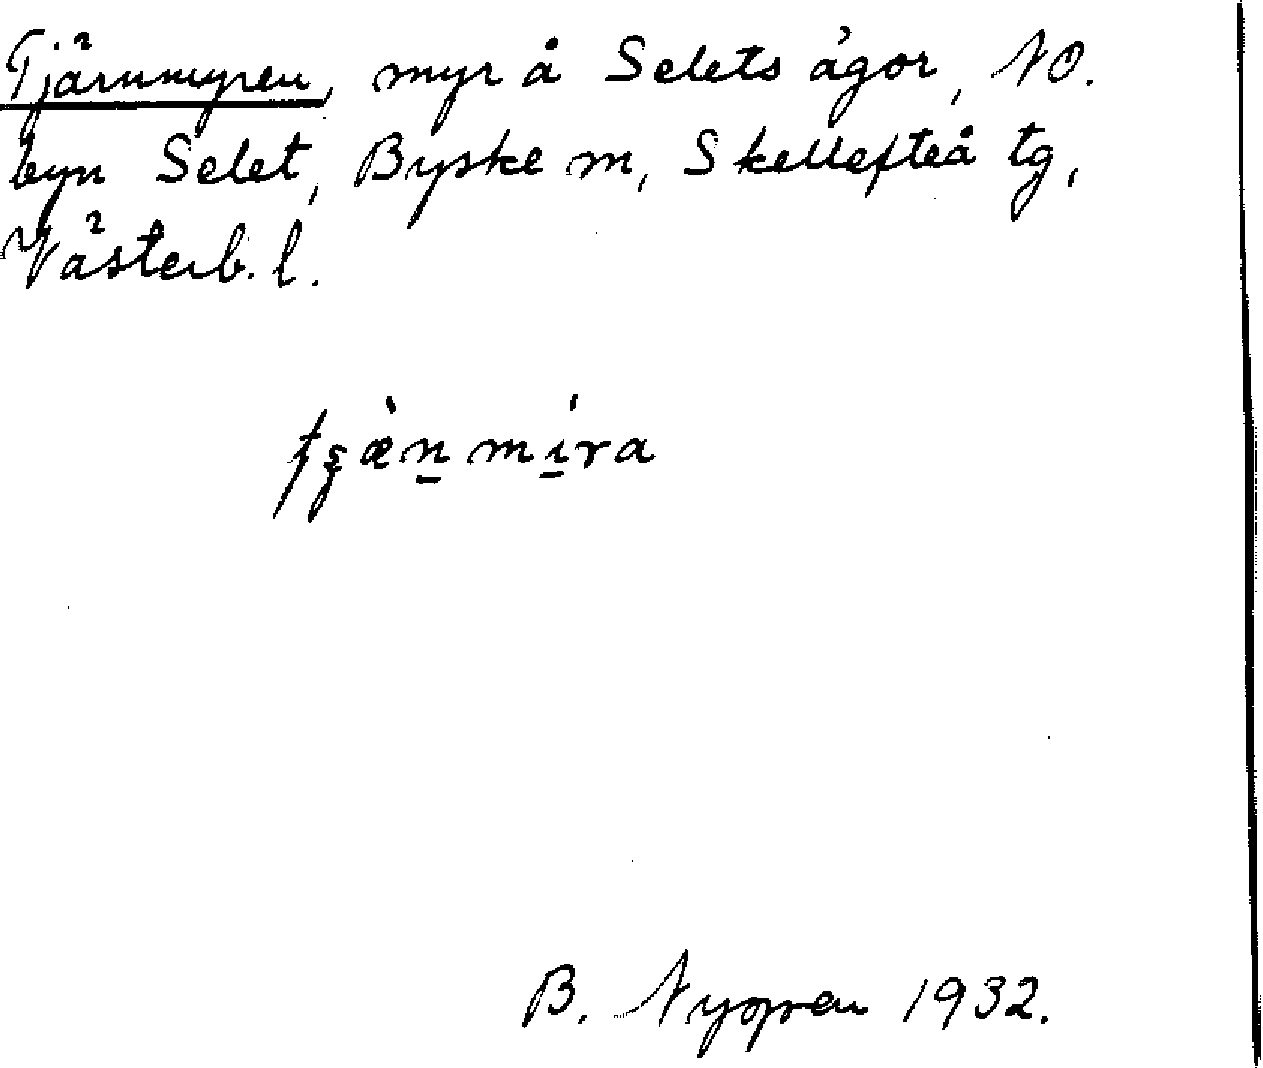 Tjärnmyren, myr å Selets ägor, NO.
byn Selet, Byske m, Skellefteå tg,
Västerb. l.
B. Nygren 1932.